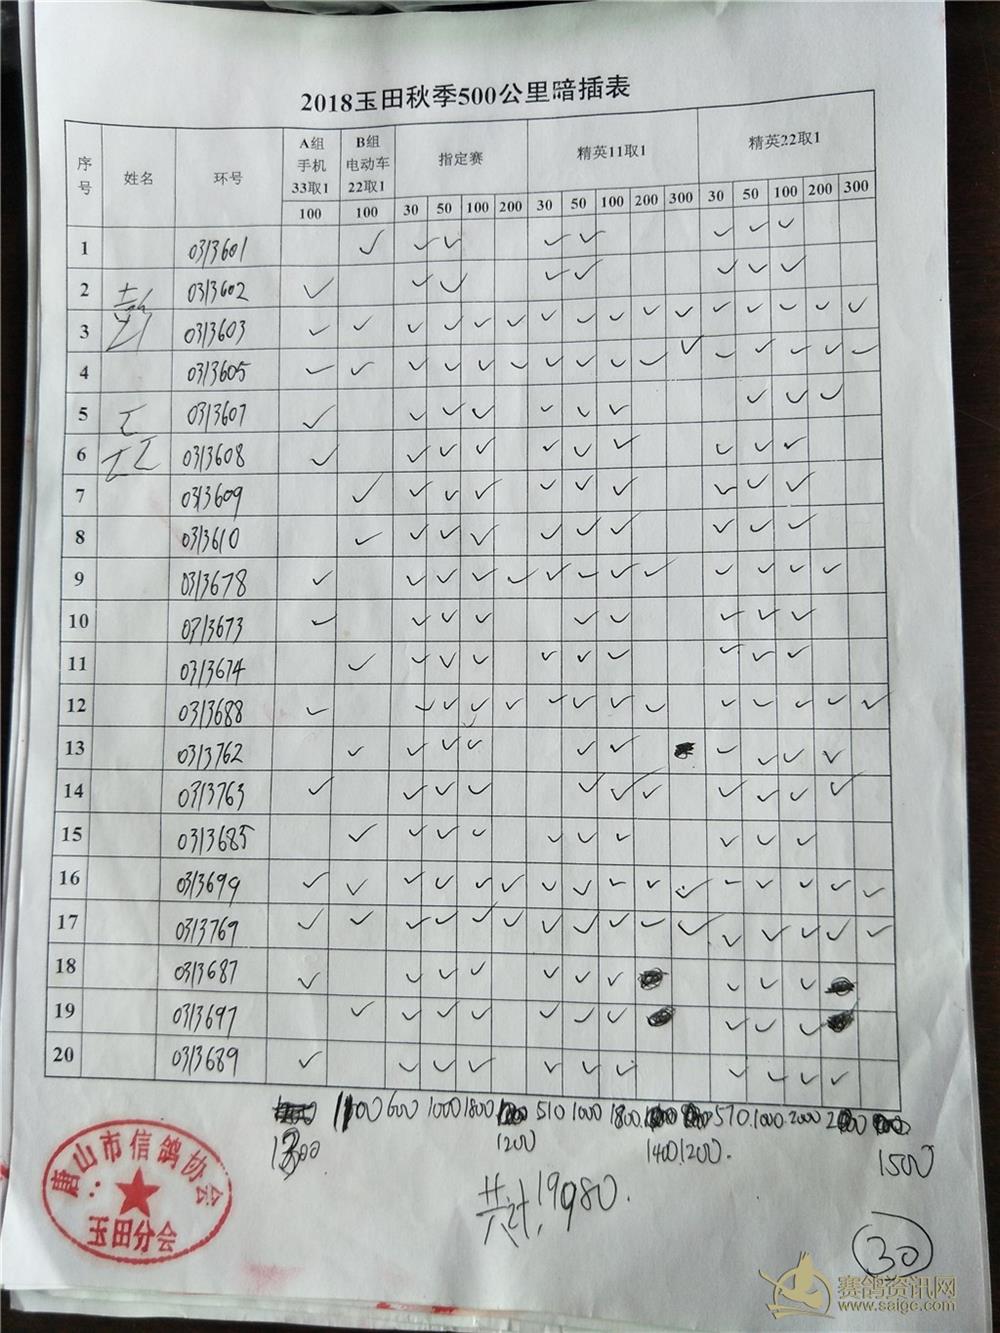 2018玉田秋季500公里暗插表
序号 姓名 环号 A组手机33取1 B组电动车22取1 指定赛 精英11取1 精英22取1
100 100 30 50 100 200 30 50 100 200 300 30 50 100 200 300
1 0313601
2 0313602
3 0313603
4 0313605
5 0313607
6 0313608
7 0313609
8 0313610
9 0313678
10 0313673
11 0313674
12 0313688
13 0313762
14 0313763
15 0313685
16 0313699
17 0313769
18 0313687
19 0313697
20 0313689
1100 600 1000 1800 510 1000 1800 570 1000 2000 2000
1300 1200 1400 1200 1500
共计 19980
唐山市信鸽协会
玉田分会
30
赛鸽资讯网
www.saigc.com